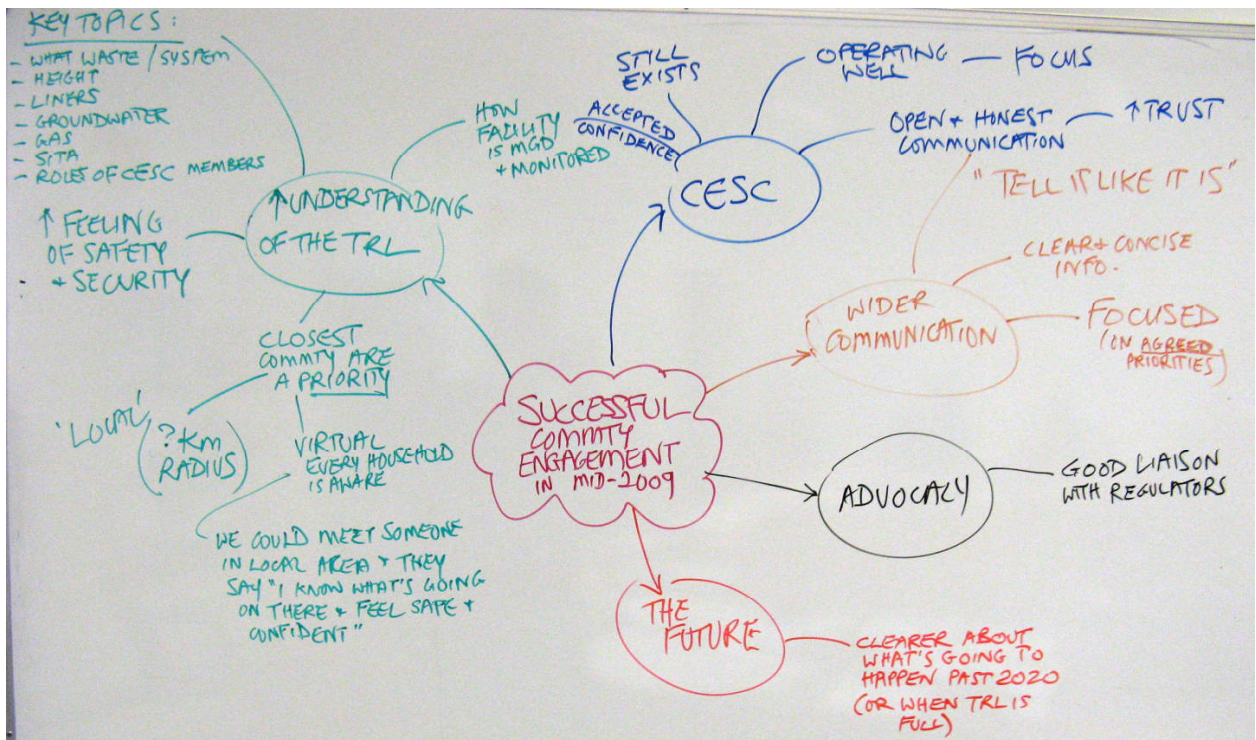 KEY TOPICS:
- WHAT WASTE/SYSTEM
- HEIGHT
- LINERS
- GROUNDWATER
- GAS
- SITA
- ROLES OF CESC MEMBERS
↑ FEELING
OF SAFETY
+ SECURITY
↑UNDERSTANDING
OF THE TRL
HOW
FACILITY
IS MGD
+ MONITORED
CLOSEST
COMMTY ARE
A PRIORITY
'LOCAL'
(?Km
RADIUS)
VIRTUAL
EVERY HOUSEHOLD
IS AWARE
WE COULD MEET SOMEONE
IN LOCAL AREA + THEY
SAY "I KNOW WHAT'S GOING
ON THERE + FEEL SAFE +
CONFIDENT"
SUCCESSFUL
COMMTY
ENGAGEMENT
IN MID-2009
STILL
EXISTS
ACCEPTED
CONFIDENCE
CESC
OPERATING
WELL — FOCUS
OPEN + HONEST
COMMUNICATION — ↑TRUST
"TELL IT LIKE IT IS"
WIDER
COMMUNICATION
CLEAR + CONCISE
INFO.
FOCUSED
(ON AGREED
PRIORITIES)
ADVOCACY
GOOD LIAISON
WITH REGULATORS
THE
FUTURE
CLEARER ABOUT
WHAT'S GOING TO
HAPPEN PAST 2020
(OR WHEN TRL IS
FULL)